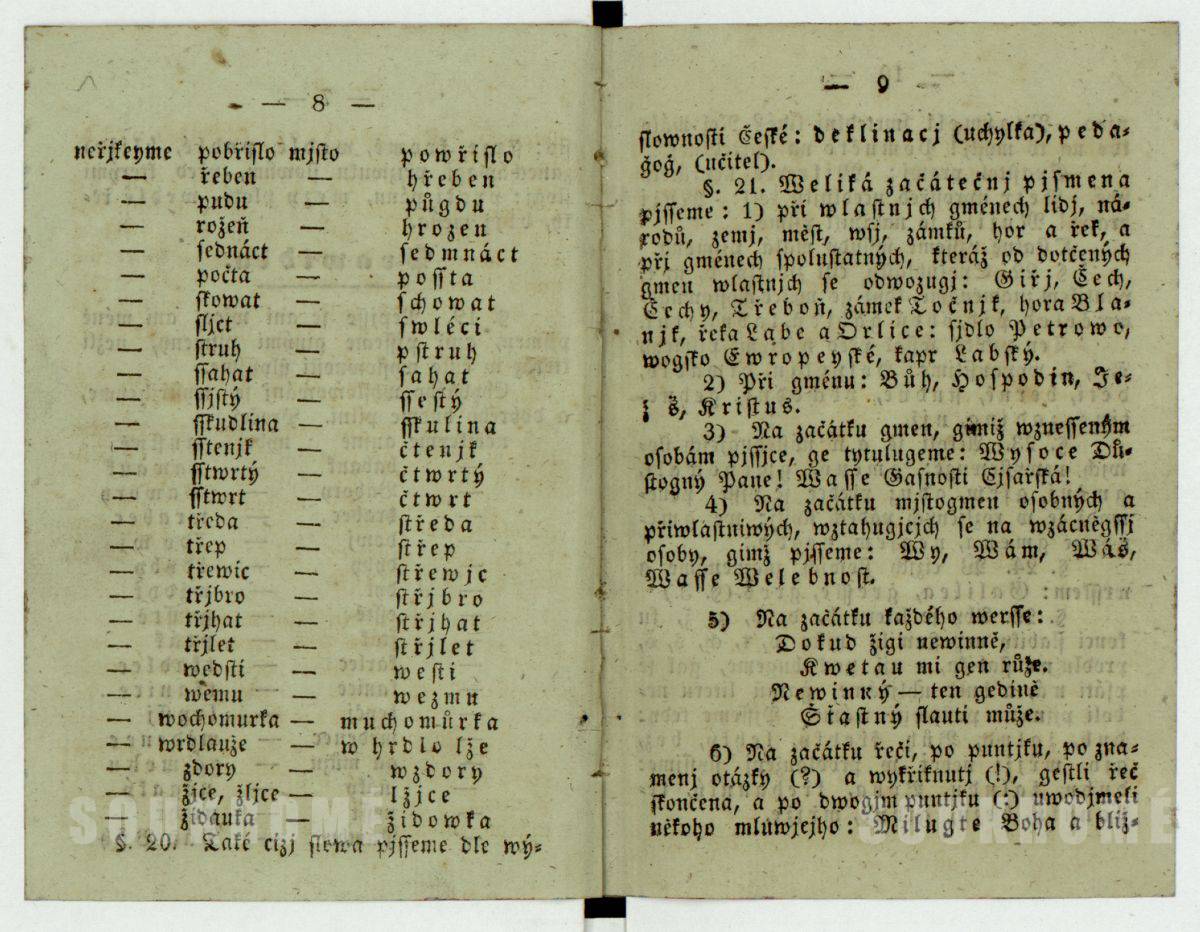 — 8 —
neřjkeyme pobřislo mjsto powřislo
— řeben — hřeben
— pudu — půgdu
— rožeň — hrozen
— sednáct — sedmnáct
— počta — possta
— skowat — schowat
— sljct — swléci
— struh — pstruh
— ssahat — sahat
— ssjstý — ssestý
— sskudlina — sskulina
— sstenjk — čtenjk
— sstwrtý — čtwrtý
— sstwrt — čtwrt
— tředa — středa
— třep — střep
— třewic — střewjc
— třjbro — střjbro
— třjhat — střjhat
— třjlet — střjlet
— wedsti — westi
— wemu — wezmu
— wochomurka — muchomůrka
— wrdlauže — w hrdlo lže
— zdory — wzdory
— žjce, žljce — lžjce
— židauka — židowka
§. 20. Také cizj slowa pjsseme dle wý-
— 9
slownosti České: deklinacj (uchylka), peda-
ǧoǧ, (učitel).
§. 21. Weliká začátečnj pjsmena
pjsseme: 1) při wlastnjch gménech lidj, ná-
rodů, zemj, měst, wsj, zámků, hor a řek, a
při gménech spolustatných, kteráž od dotčených
gmen wlastnjch se odwozugj: Giřj, Čech,
Čechy, Třeboň, zámek Točnjk, hora Bla-
njk, řeka Labe a Orlice: sjdlo Petrowo,
wogsko Ewropeyské, kapr Labský.
2) Při gménu: Bůh, Hospodin, Je-
ž š, Kristus.
3) Na začátku gmen, gimiž wznesseným
osobám pjssjce, ge tytulugeme: Wysoce Dů-
stogný Pane! Wasse Gasnosti Cjsařská!
4) Na začátku mjstogmen osobných a
přiwlastniwých, wztahugjcjch se na wzácněgssj
osoby, gimž pjsseme: Wy, Wám, Wáš,
Wasse Welebnost.
5) Na začátku každého wersse:
Dokud žigi newinně,
Kwetau mi gen růže.
Newinný — ten gedině
Šťastný slauti může.
6) Na začátku řeči, po puntjku, po zna-
menj otázky (?) a wykřiknutj (!), gestli řeč
skončena, a po dwogjm puntjku (:) uwodjmeli
někoho mluwjcjho: Milugte Boha a bliž-